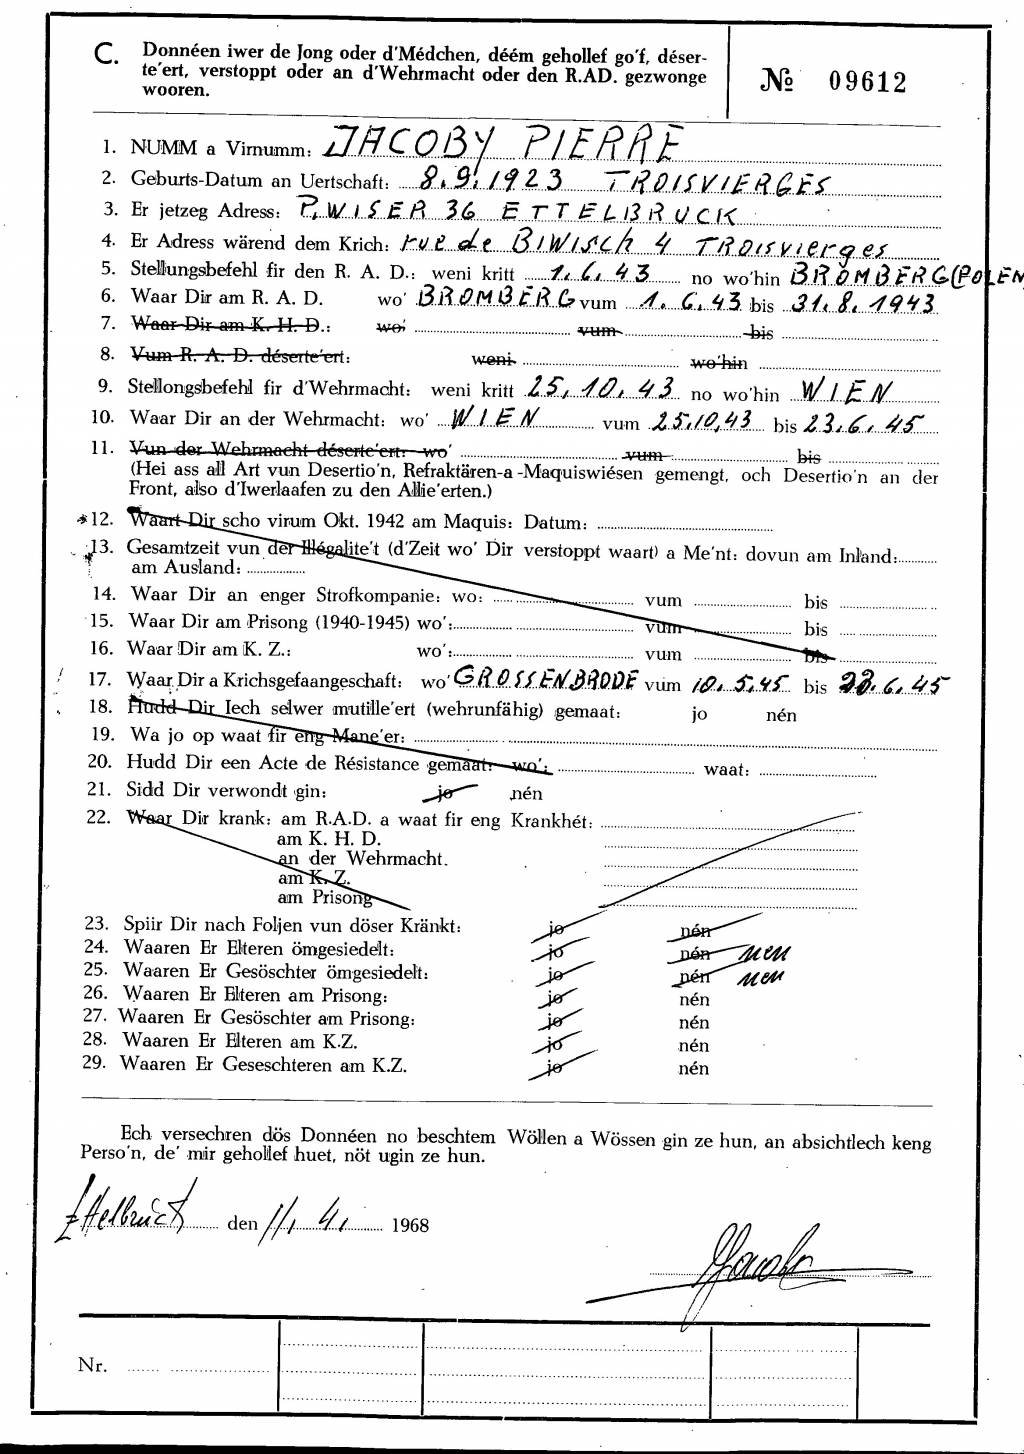 C. Donnéen iwer de Jong oder d'Médchen, déém gehollef go'f, déser-
te'ert, verstoppt oder an d'Wehrmacht oder den R.AD. gezwonge
wooren.
№ 09612
1. NUMM a Virnumm: JACOBY PIERRE
2. Geburts-Datum an Uertschaft: 8.9.1923 TROISVIERGES
3. Er jetzeg Adress: P. WISER 36 ETTELBRUCK
4. Er Adress wärend dem Krich: rue de BIWISCH 4 TROISVIERGES
5. Stellungsbefehl fir den R. A. D.: weni kritt 1.6.43 no wo'hin BROMBERG (POLEN
6. Waar Dir am R. A. D. wo' BROMBERG vum 1.6.43 bis 31.8.1943
7. Waar Dir am K. H. D.: wo' vum bis
8. Vum R. A. D. déserte'ert: weni wo'hin
9. Stellongsbefehl fir d'Wehrmacht: weni kritt 25.10.43 no wo'hin WIEN
10. Waar Dir an der Wehrmacht: wo' WIEN vum 25.10.43 bis 23.6.45
11. Vun der Wehrmacht déserte'ert: wo' vum bis
(Hei ass all Art vun Desertio'n, Refraktären-a -Maquiswiésen gemengt, och Desertio'n an der
Front, also d'Iwerlaafen zu den Allie'erten.)
*12. Waart Dir scho virum Okt. 1942 am Maquis: Datum:
13. Gesamtzeit vun der Illégalite't (d'Zeit wo' Dir verstoppt waart) a Me'nt: dovun am Inland:
am Ausland:
14. Waar Dir an enger Strofkompanie: wo: vum bis
15. Waar Dir am Prisong (1940-1945) wo': vum bis
16. Waar Dir am K. Z.: wo': vum bis
17. Waar Dir a Krichsgefaangeschaft: wo' GROSSENBRODE vum 10.5.45 bis 23.6.45
18. Hudd Dir Iech selwer mutille'ert (wehrunfähig) gemaat: jo nén
19. Wa jo op waat fir eng Mane'er:
20. Hudd Dir een Acte de Résistance gemaat: wo': waat:
21. Sidd Dir verwondt gin: jo nén
22. Waar Dir krank: am R.A.D. a waat fir eng Krankhét:
am K. H. D.
an der Wehrmacht.
am K. Z.
am Prisong
23. Spiir Dir nach Foljen vun döser Kränkt: jo nén
24. Waaren Er Elteren ömgesiedelt: jo nén nen
25. Waaren Er Gesöschter ömgesiedelt: jo nén nen
26. Waaren Er Elteren am Prisong: jo nén
27. Waaren Er Gesöschter am Prisong: jo nén
28. Waaren Er Elteren am K.Z. jo nén
29. Waaren Er Geseschteren am K.Z. jo nén
Ech versechren dös Donnéen no beschtem Wöllen a Wössen gin ze hun, an absichtlech keng
Perso'n, de' mir gehollef huet, nöt ugin ze hun.
Ettelbruck den 11.4. 1968
Nr.